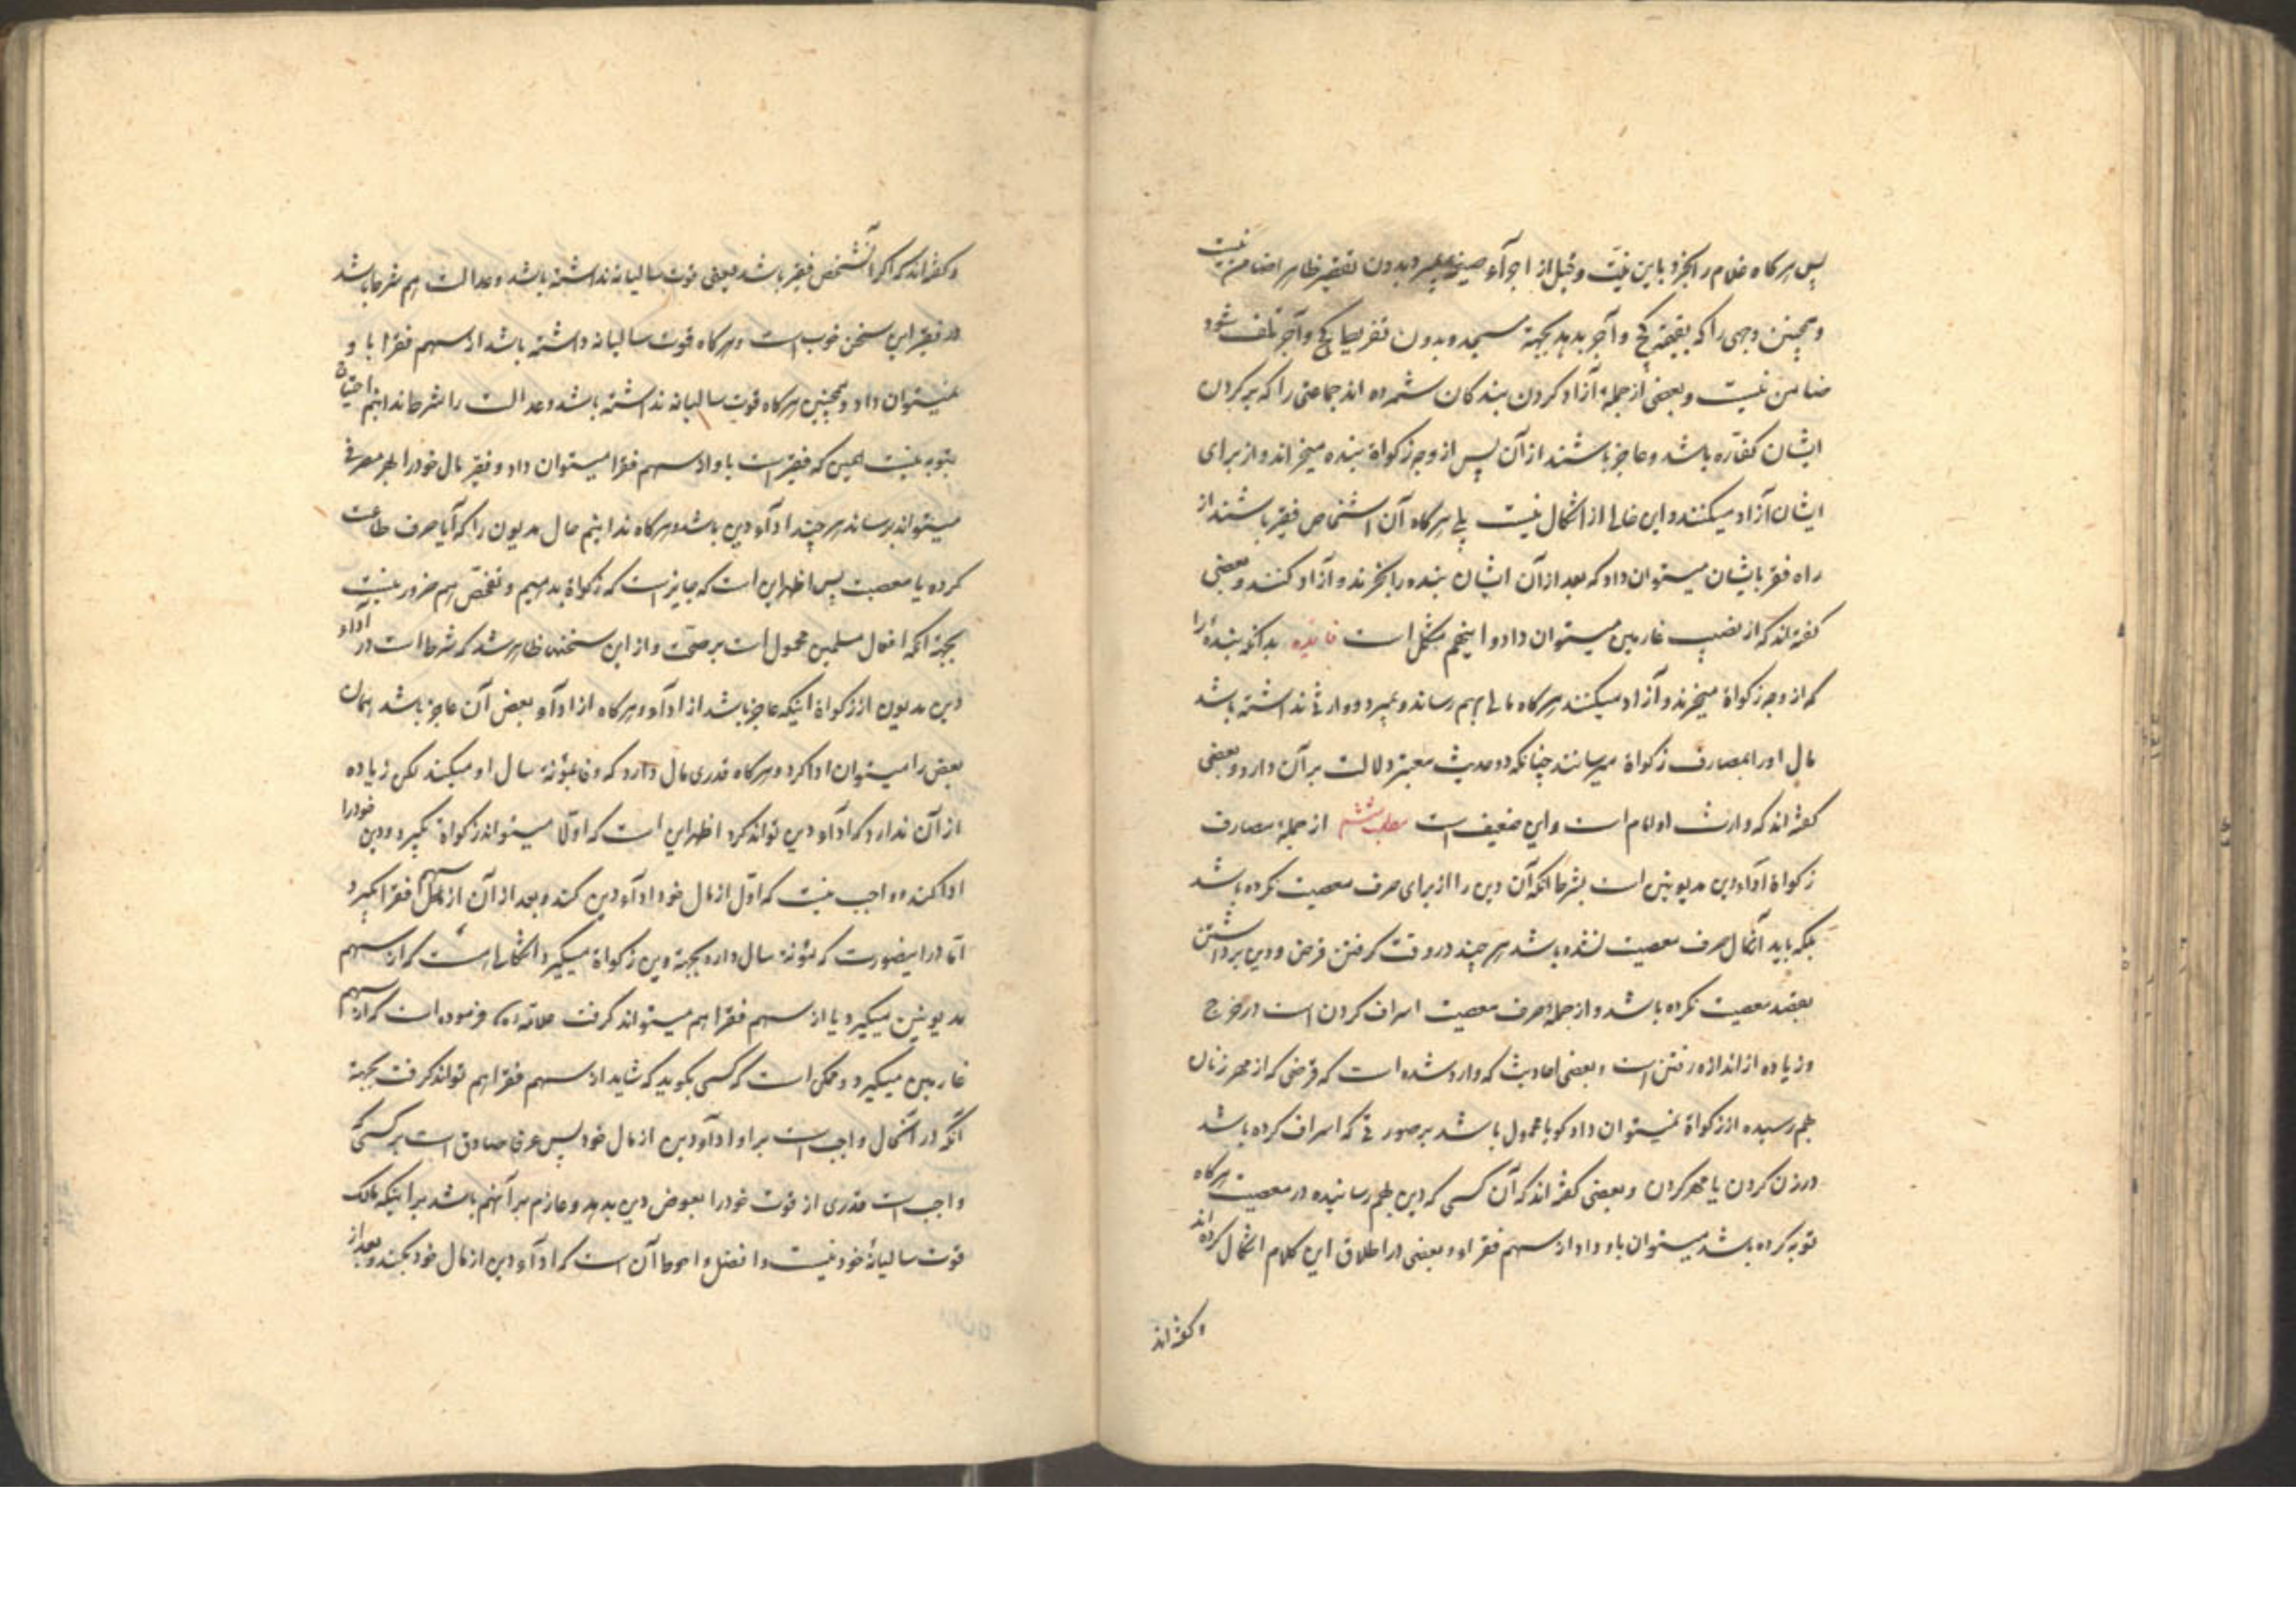 پس هرگاه غلام را بخرد باین نیت و قبل از اجرآء صیغه بمیرد بدون تقصیر ظاهرا ضامن نیست
و همچنین وجهی را که بقیمة کچ و آجر بدهد بجهة مسجد و بدون تفریط کچ و آجر تلف شود
ضامن نیست و بعضی از جملهٔ آزاد کردن بندکان شمرده اند جماعتی را که بر کردن
ایشان کفّاره باشد و عاجز باشند از آن پس از وجه زکواة بنده میخراند و از برای
ایشان آزاد میکنند و این خالی از اشکال نیست بلی هرکاه آن اشخاص فقیر باشند از
راه فقر بایشان میتوان داد که بعد از آن ایشان بنده را بخرند و آزاد کنند و بعضی
کفته اند که از نصیب غارمین میتوان داد و اینهم مشکل است فایده بدانکه بندهٔ را
که از وجه زکواة میخرند و آزاد میکنند هرکاه مالی بهم رساند و بمیرد و وارثی نداشته باشد
مال او را بمصارف زکواة میرسانند چنانکه دو حدیث معتبر دلالت بر آن دارد و بعضی
کفته اند که وارث او امام است و این ضعیف است مطلب ششم از جملهٔ مصارف
زکواة ادآء دین مدیونین است بشرط آنکه آن دین را از برای صرف معصیت نکرده باشد
بلکه باید آنمال صرف معصیت نشده باشد هر چند در وقت کرفتن قرض و دین برداشتن
بقصد معصیت نکرده باشد و از جملهٔ صرف معصیت اسراف کردن است در خرج
و زیاده از اندازه رفتن است و بعضی احادیث که وارد شده است که قرضی که از مهر زنان
بهم رسیده از زکواة نمیتوان داد کویا محمول باشد بر صورتی که اسراف کرده باشد
در زن کردن یا مهر کردن و بعضی کفته اند که آن کسی که دین بهم رسانیده در معصیت هرکاه
توبه کرده باشد میتوان باو داد از سهم فقراء و بعضی در اطلاق این کلام اشکال کرده اند
و کفته اند
و کفته اند که اکر آنشخص فقیر باشد یعنی قوت سالیانه نداشته باشد و عدالت هم شرط باشد
در فقیر این سخن خوب است و هرکاه قوت سالیانه داشته باشد از سهم فقرا باو
نمیتوان داد و همچنین هرکاه قوت سالیانه نداشته باشد و عدالت را شرط ندانیم احتیاج
بتوبه نیست همین که فقیر است باو از سهم فقرا میتوان داد و فقیر مال خود را بهر مصرفی
میتواند برساند هر چند ادآء دین باشد و هرکاه ندانیم حال مدیون را که آیا صرف طاعت
کرده یا معصیت پس اظهر این است که جایز است که زکواة بدهیم و تفحّص هم ضرور نیست
بجهة آنکه افعال مسلمین محمول است بر صحّت و از این سخنها ظاهر شد که شرط است در ادآء
دین مدیون از زکواة اینکه عاجز باشد از ادآء و هرکاه از ادآء بعض آن عاجز باشد همان
بعض را میتوان ادا کرد و هرکاه قدری مال دارد که وفا بمؤنهٔ سال او میکند لکن زیاده
از آن ندارد که ادآء دین تواند کرد اظهر این است که اوّلا میتواند زکواة بکیرد و دین خود را
ادا کند و واجب نیست که اوّل از مال خود ادآء دین کند و بعد از آن از سهم فقرا بکیرد
امّا در اینصورت که مؤنهٔ سال دارد و بجهة دین زکواة میکیرد اشکالی است که از سهم
مدیونین میکیرد یا از سهم فقرا هم میتواند کرفت علامه ره فرموده است که از سهم
غارمین میکیرد و ممکن است که کسی بکوید که شاید از سهم فقرا هم تواند کرفت بجهة
آنکه در آنحال واجب است بر او ادآء دین از مال خود پس عرفا صادق است بر کسی که
واجب است قدری از قوت خود را بعوض دین بدهد و عازم بر آنهم باشد بر اینکه مالک
قوت سالیانهٔ خود نیست و افضل و احوط آن است که ادآء دین از مال خود بکند و بعد از